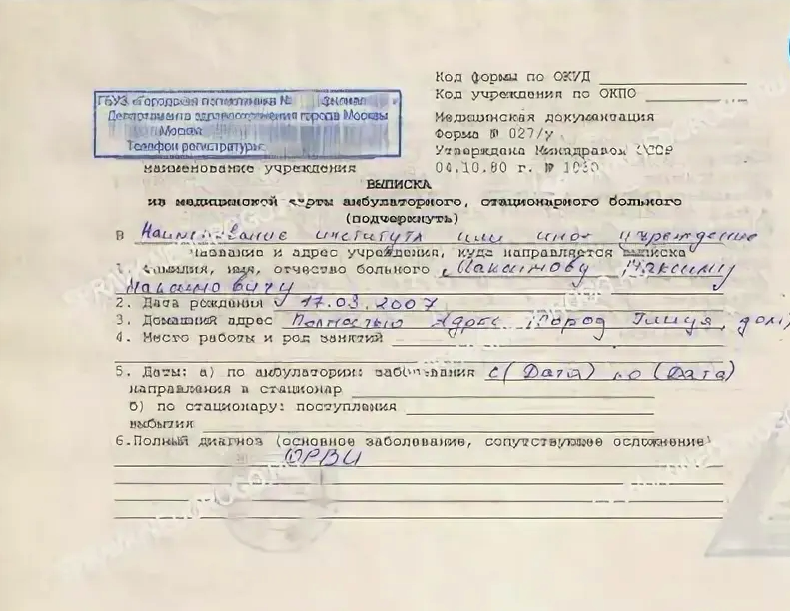 Код формы по ОКУД
Код учреждения по ОКПО
ГБУЗ «Городская поликлиника № филиал
Департамента здравоохранения города Москвы
Москва
Телефон регистратуры:
Медицинская документация
Форма № 027/у
Утверждена Минздравом СССР
04.10.80 г. № 1030
наименование учреждения
ВЫПИСКА
из медицинской карты амбулаторного, стационарного больного
(подчеркнуть)
в Наименование института или иное учреждение
название и адрес учреждения, куда направляется выписка
1. Фамилия, имя, отчество больного Максимову Максиму
Максимовичу
2. Дата рождения 17.03.2007
3. Домашний адрес Полностью Адрес (Город Улица, дом)
4. Место работы и род занятий
5. Даты: а) по амбулатории: заболевания с (Дата) по (Дата)
направления в стационар
б) по стационару: поступления
выбытия
6.Полный диагноз (основное заболевание, сопутствующее осложнение)
ОРВИ